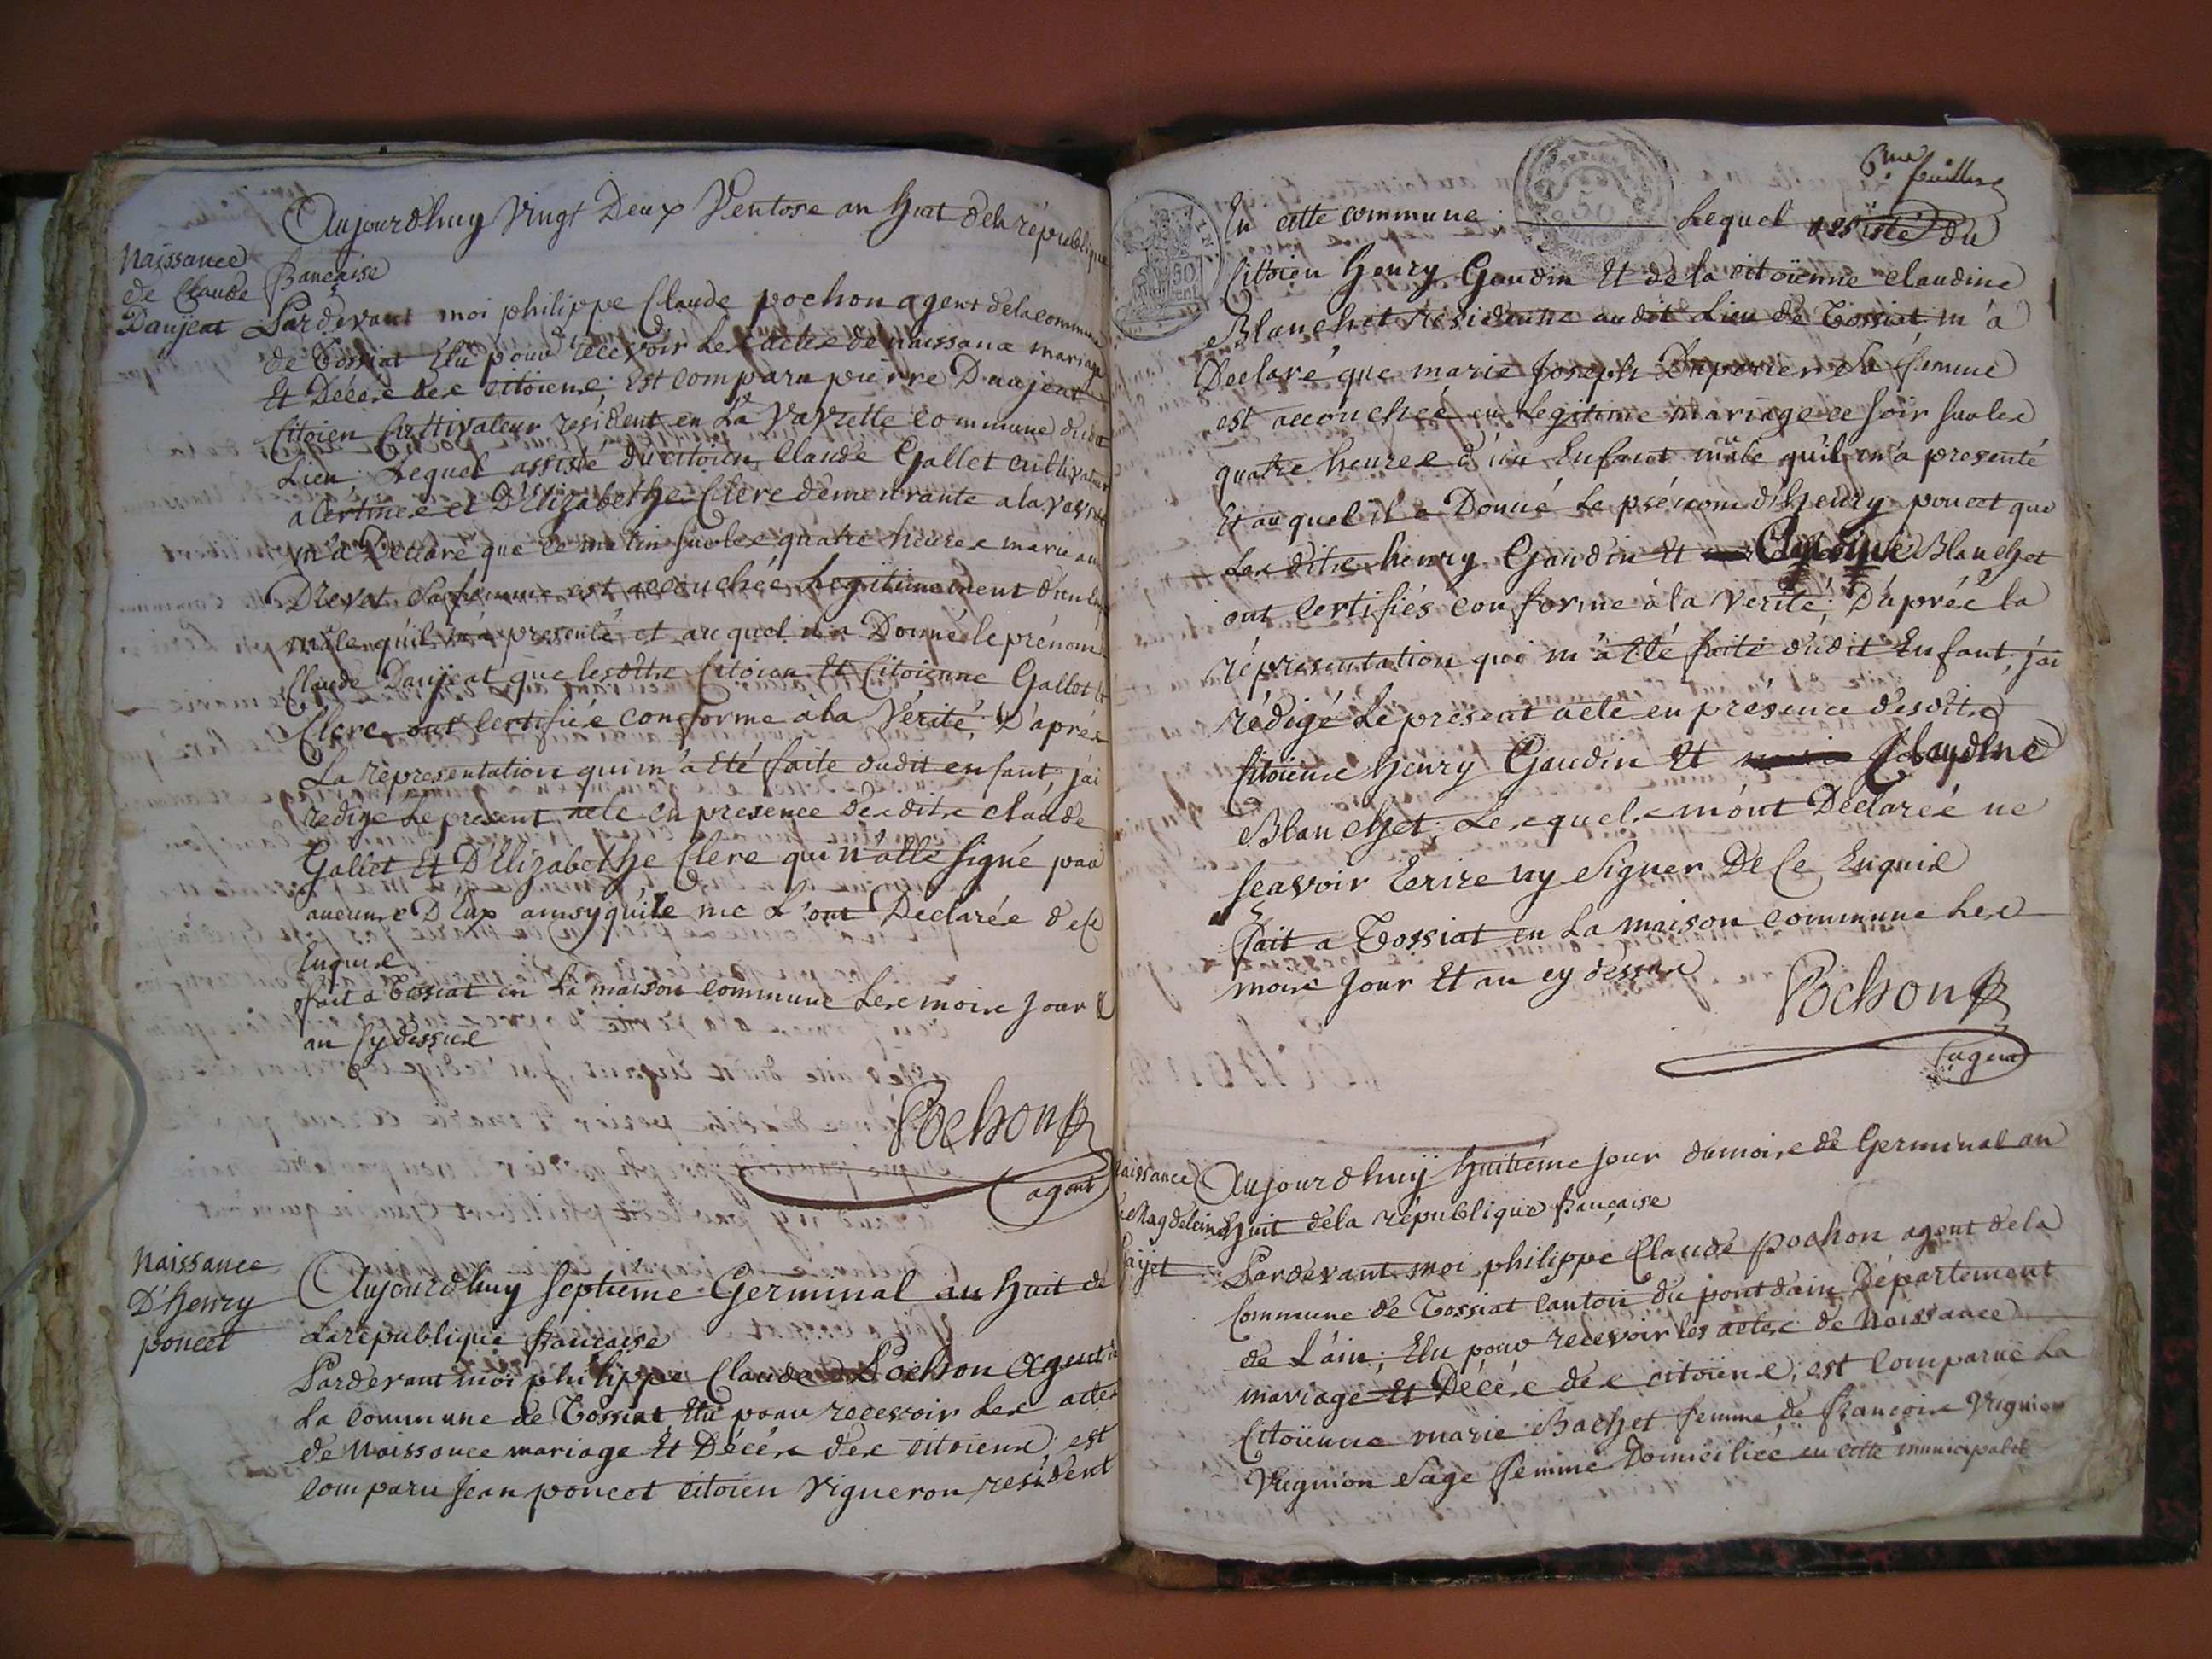 Aujourdhuy Vingt Deux Ventose an huit dela république
française
Naissance
de Claude
Daujeat
Pardevant moi philippe Claude pochon agent dela commune
de Tossiat Elu pour recevoir Les actes de naissance mariage
Et Décès des citoiens; est comparu pierre Daujeat
Citoien Cultivateur resident en La Vavrette commune dudit
Lieu, Lequel assisté du citoien Claude Gallet cultivateur
a Certines et D'Elizabethe Clerc demeurante a la Vavrette
m'a Déclaré que ce matin sur les quatre heures marie
Drevet sa femme est accouchée Legitimement d'un
mâle qu'il m'a presenté et au quel il a Donné le prénom
Claude Daujeat que les dits Citoien Et Citoienne Gallet et
Clerc ont Certifiés conforme à la Vérité; D'après
La représentation qui m'a été faite dudit enfant, j'ai
redigé Le present acte en presence desdits claude
Gallet Et D'Elizabethe Clerc qui n'a été signé par
aucuns D'Eux ainsy qu'ils me L'ont Declarés de ce
Enquis
fait a Tossiat en La maison commune Les mois jour &
an Cy dessus
Pochon
agent
Naissance
D'henry
poncet
Aujourdhuy septième Germinal an huit de
La republique française
Pardevant moi philippe Claude Pochon Agent de
La commune de Tossiat Elu pour recevoir Les actes
de Naissance mariage Et Décès des citoiens; est
comparu Jean poncet citoien Vigneron résident
6me feuillet
En cette commune Lequel assisté du
Citoien henry Gaudin Et de la citoïenne claudine
Blanchet résidente audit Lieu de Tossiat m'a
Declaré que marie Joseph Duperier sa femme
est accouchée en Legitime mariage ce soir sur les
quatre heures d'un Enfant mâle qu'il m'a presenté
Et auquel il a Donné Le prénom d'henry poncet que
Les dits henry Gaudin Et Claudine Blanchet
ont Certifiés conforme à la Verité; D'après la
réprésentation qui m'a été faite dudit Enfant, j'ai
rédigé Le présent acte en présence desdits
Citoiens henry Gaudin Et Claudine
Blanchet; Lesquels m'ont Déclarés ne
sçavoir Ecrire ny signer De Ce Enquis
fait a Tossiat en La maison commune Les
mois jour Et an cy dessus
Pochon
agent
Naissance
de Magdeleine
Pajet
Aujourdhuy huitième jour du mois de Germinal an
huit dela république française
Pardevant moi philippe Claude pochon agent de la
Commune de Tossiat canton du pont dain Département
de L'ain; Elu pour recevoir les actes de Naissance
mariage Et Décès des citoiens; est comparue La
Citoïenne marie Bachet femme de françois Vignion
Vignion sage femme Domiciliée en cette municipalité